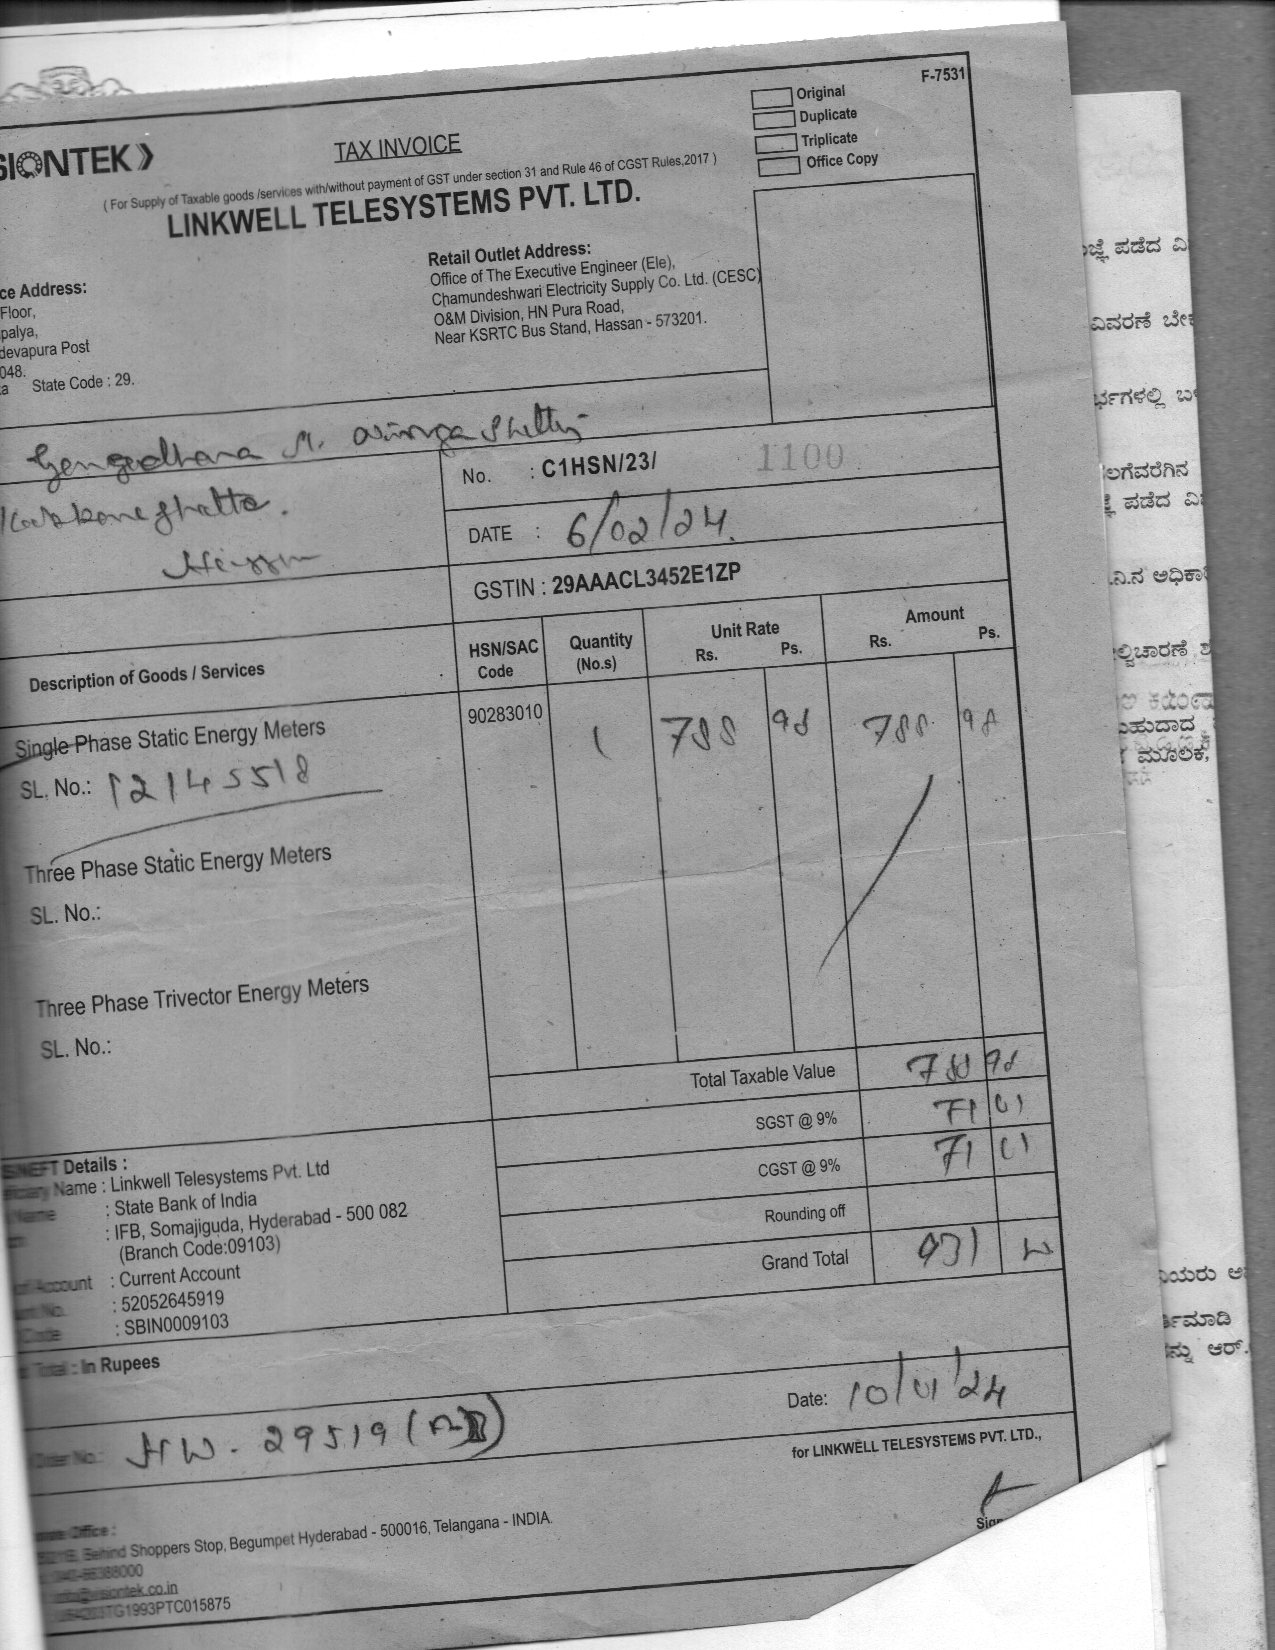 F-7531
Original
Duplicate
Triplicate
Office Copy
SIONTEK
TAX INVOICE
( For Supply of Taxable goods /services with/without payment of GST under section 31 and Rule 46 of CGST Rules,2017 )
LINKWELL TELESYSTEMS PVT. LTD.
ce Address:
Floor,
palya,
devapura Post
048.
a State Code : 29.
Retail Outlet Address:
Office of The Executive Engineer (Ele),
Chamundeshwari Electricity Supply Co. Ltd. (CESC)
O&M Division, HN Pura Road,
Near KSRTC Bus Stand, Hassan - 573201.
No. : C1HSN/23/ 1100
DATE : 6/02/24.
GSTIN : 29AAACL3452E1ZP
Description of Goods / Services
HSN/SAC Code
Quantity (No.s)
Unit Rate Rs. Ps.
Amount Rs. Ps.
Single Phase Static Energy Meters 90283010 1 788 98 788 98
SL. No.: 12145518
Three Phase Static Energy Meters
SL. No.:
Three Phase Trivector Energy Meters
SL. No.:
Total Taxable Value 788 98
SGST @ 9% 71 01
CGST @ 9% 71 01
Rounding off
Grand Total 931
NEFT Details :
Name : Linkwell Telesystems Pvt. Ltd
Name : State Bank of India
: IFB, Somajiguda, Hyderabad - 500 082
(Branch Code:09103)
Account : Current Account
No. : 52052645919
Code : SBIN0009103
Total : In Rupees
Order No.: HW - 29519
Date: 10/01/24
for LINKWELL TELESYSTEMS PVT. LTD.,
Office :
Behind Shoppers Stop, Begumpet Hyderabad - 500016, Telangana - INDIA.
040-66388000
info@visiontek.co.in
TG1993PTC015875
ಪಡೆದ
ವಿವರಣೆ
ಪಡೆದ
ಮೂಲಕ,